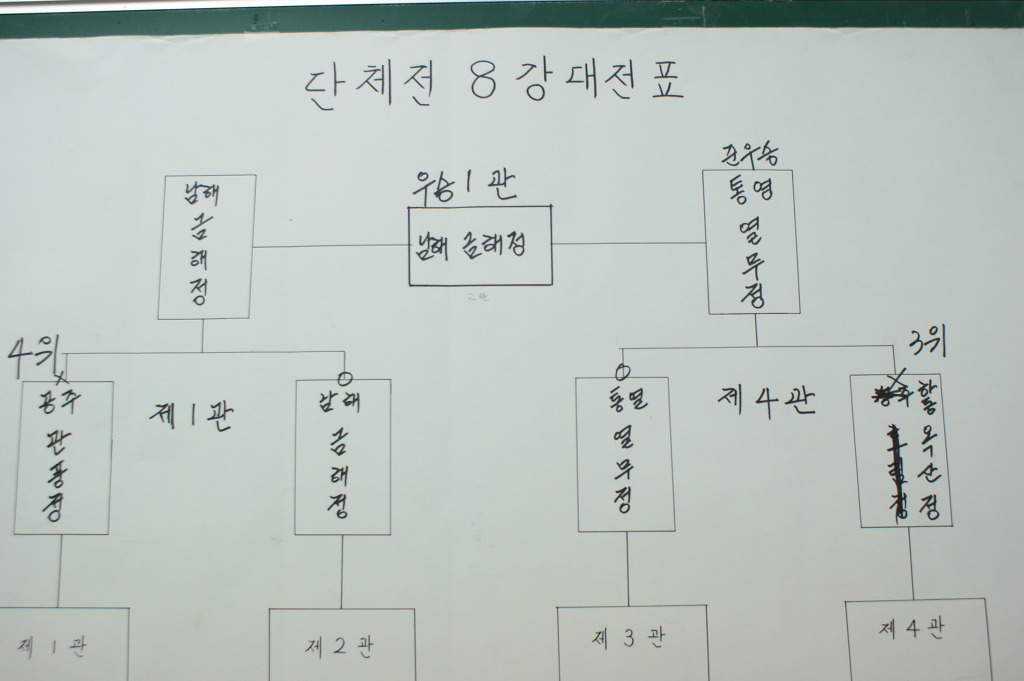 단체전 8강대전표
준우승
우승 1관
남해
금
해
정
남해 금해정
통영
열
무
정
4위
3위
광주
관
풍
정
제1관
남해
금
해
정
통열
열
무
정
제4관
옥
산
정
제1관
제2관
제3관
제4관